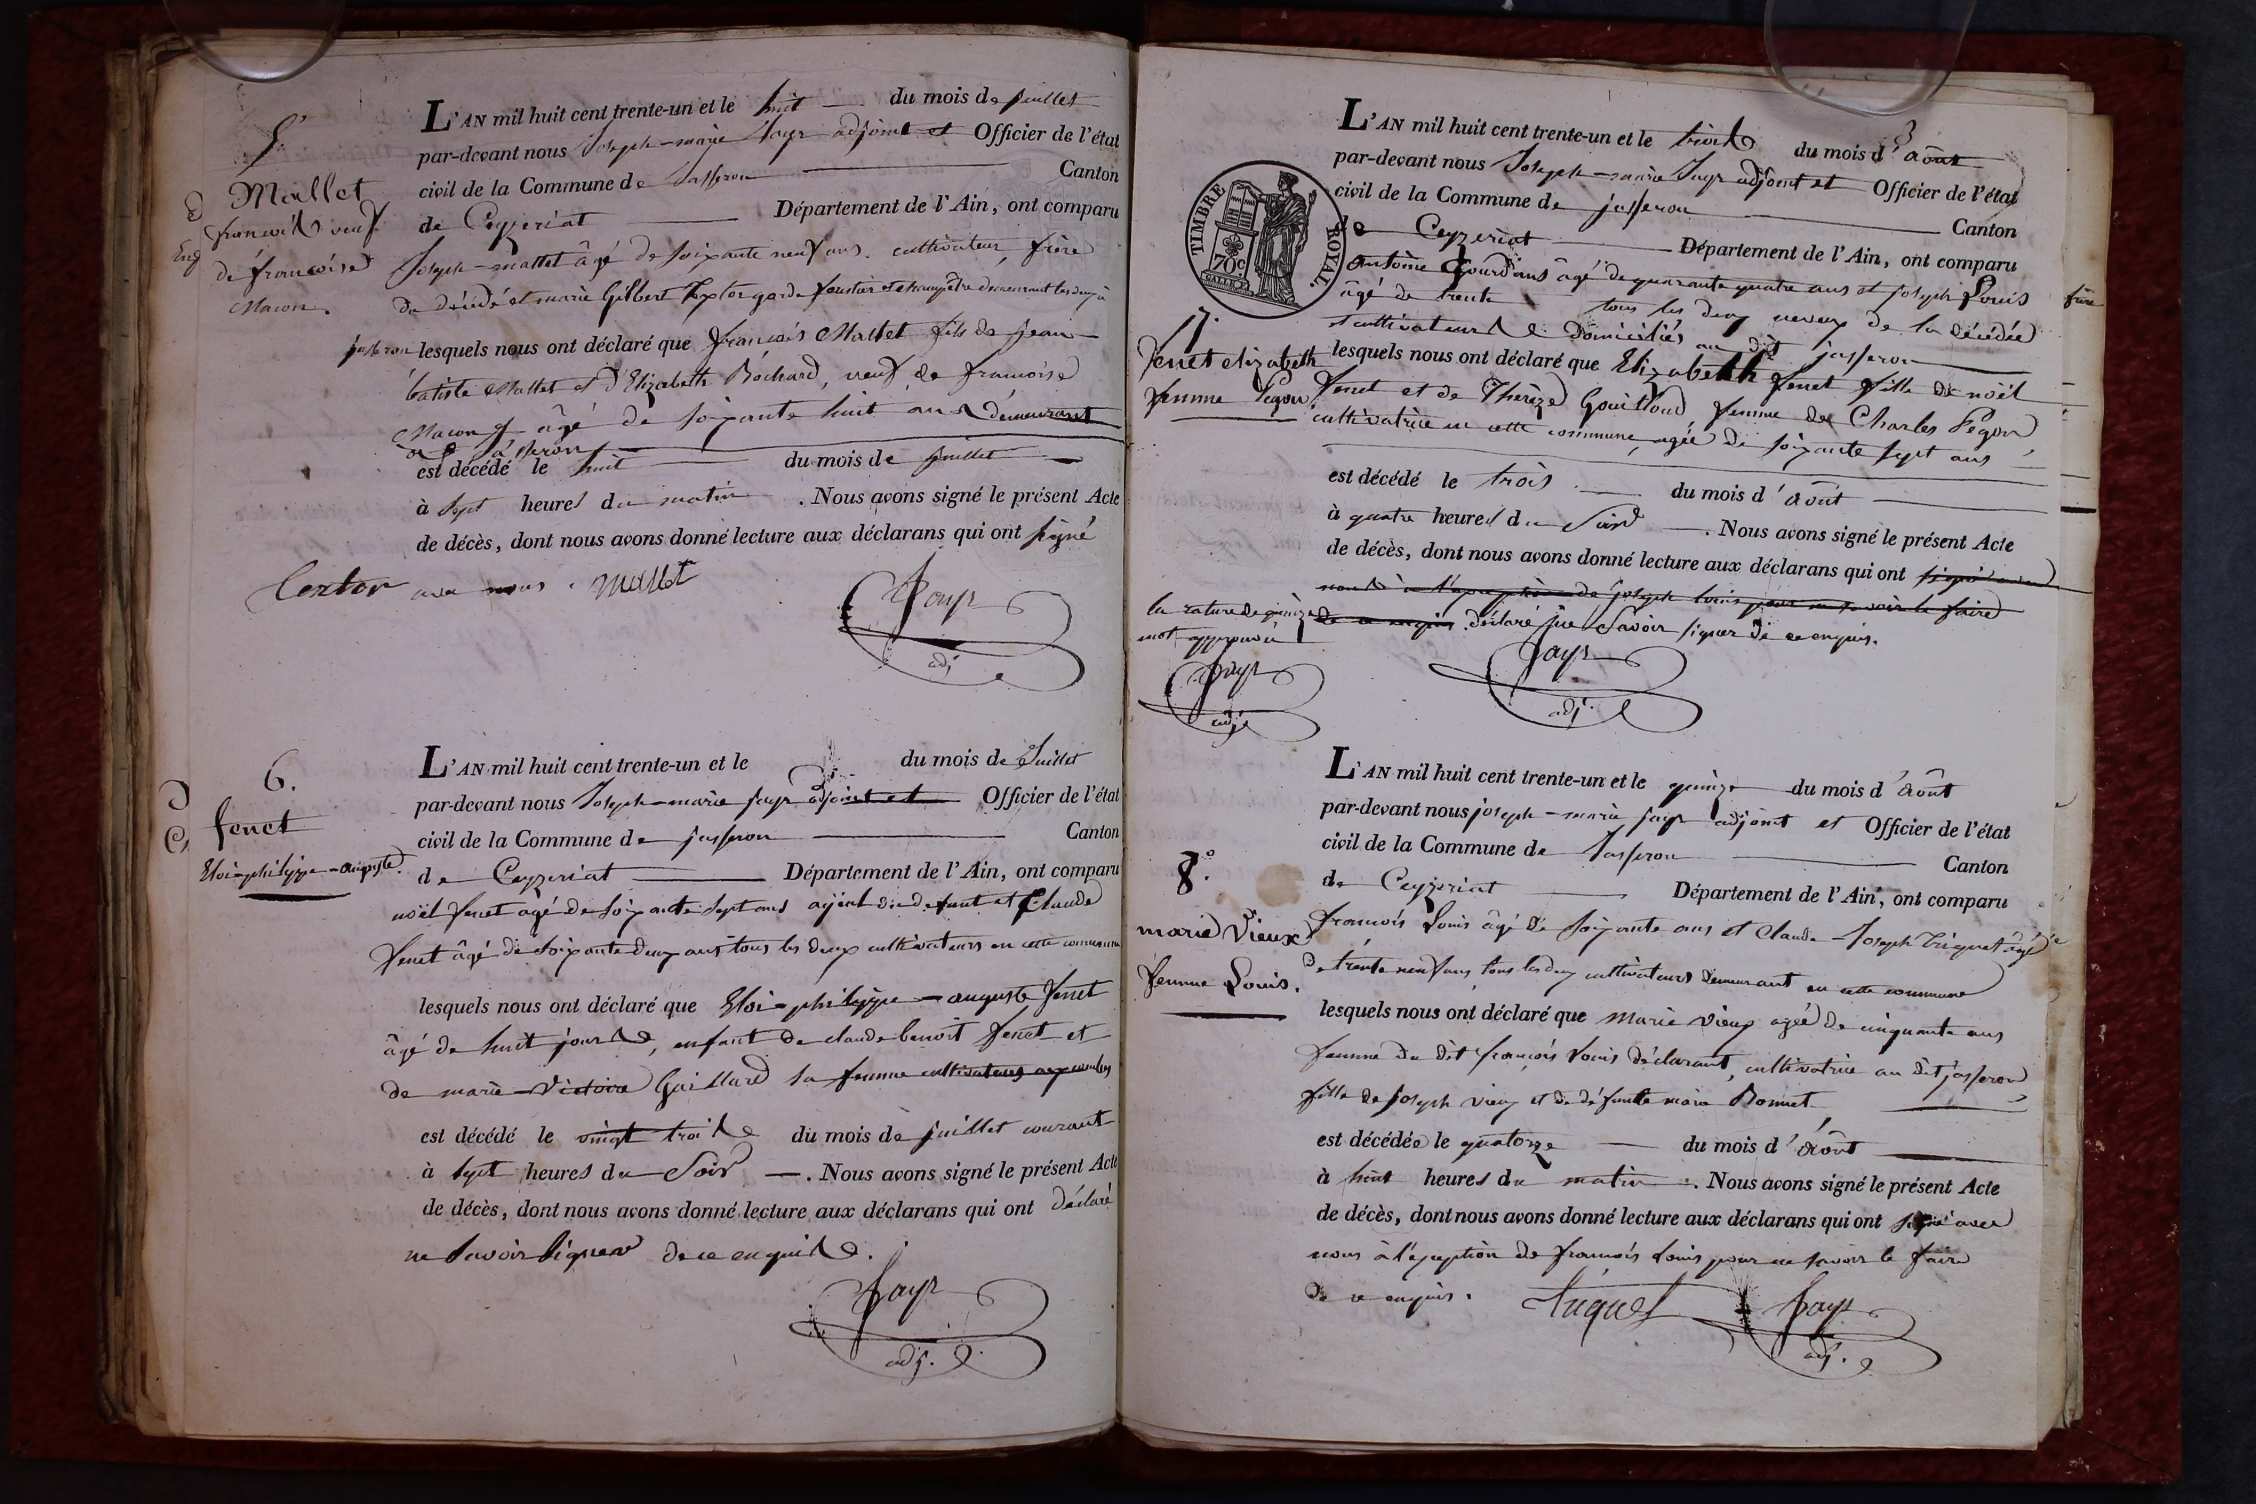 5.
Mallet
françois veuf
de françoise
Macon.
Enf
L'AN mil huit cent trente-un et le huit du mois de juillet
par-devant nous Joseph-marie Jayr adjoint et Officier de l'état
civil de la Commune de Jasseron Canton
de Ceyzeriat Département de l'Ain, ont comparu
Joseph mallet âgé de soixante neuf ans cultivateur, frère
du décédé et marie Gilbert Textor garde forestier et champêtre demeurant les deux à
jasseron lesquels nous ont déclaré que françois Mallet fils de jean
batiste Mallet et d'Elizabeth Rochard, veuf de francoise
Macon âgé de soixante huit ans demeurant
à Jasseron
est décédé le huit du mois de juillet
à sept heures du matin . Nous avons signé le présent Acte
de décès, dont nous avons donné lecture aux déclarans qui ont signé
Textor avec nous . Mallet
Jayr
adj
6.
fenet
Eloi-philippe-auguste.
L'AN mil huit cent trente-un et le du mois de Juillet
par-devant nous Joseph-marie jayr adjoint et Officier de l'état
civil de la Commune de jasseron Canton
de Ceyzeriat Département de l'Ain, ont comparu
noël fenet âgé de soixante sept ans ayeul du defunt et Claude
fenet âgé de soixante deux ans tous les deux cultivateurs en cette commune
lesquels nous ont déclaré que Eloi-philippe-auguste fenet
âgé de huit jours, enfant de claude benoit fenet et
de marie-Victoire Gaillard sa femme cultivateurs
est décédé le vingt trois du mois de juillet courant
à sept heures du Soir . Nous avons signé le présent Acte
de décès, dont nous avons donné lecture aux déclarans qui ont déclaré
ne savoir signer de ce enquis.
Jayr
adj.
TIMBRE ROYAL.
70c
7.
fenet elizabeth
femme Pegon
L'AN mil huit cent trente-un et le trois du mois d'août
par-devant nous Joseph-marie Jayr adjoint et Officier de l'état
civil de la Commune de jasseron Canton
de Ceyzeriat Département de l'Ain, ont comparu
Antoine Gourdans âgé de quarante quatre ans et joseph Louis
âgé de trente tous les deux neveux de la décédée
et cultivateurs domiciliés au dit jasseron
lesquels nous ont déclaré que Elizabeth fenet fille de noël
fenet et de Thérèze Gouilloud femme de Charles Pegon
cultivatrice en cette commune, agée de soixante sept ans
est décédé le trois du mois d'août
à quatre heures du Soir . Nous avons signé le présent Acte
de décès, dont nous avons donné lecture aux déclarans qui ont signé avec
nous à l'exception de joseph louis pour ne savoir le faire
de ce enquis déclaré ne Savoir signer de ce enquis.
la rature de quinze
mot approuvée
Jayr
adj
Jayr
adj.
8.
marie Vieux
femme Louis.
L'AN mil huit cent trente-un et le quinze du mois d'Août
par-devant nous joseph-marie jayr adjoint et Officier de l'état
civil de la Commune de Jasseron Canton
de Ceyzeriat Département de l'Ain, ont comparu
françois Louis âgé de soixante ans et Claude-Joseph Triquet âgé
de trente neuf ans, tous les deux cultivateurs demeurant en cette commune
lesquels nous ont déclaré que Marie vieux agée de cinquante ans
femme du dit françois Louis déclarant, cultivatrice au dit jasseron
fille de joseph vieux et de défunte marie Bonnet
est décédée le quatorze du mois d'Août
à huit heures du matin . Nous avons signé le présent Acte
de décès, dont nous avons donné lecture aux déclarans qui ont signé avec
nous à l'exception de françois Louis pour ne savoir le faire
de ce enquis. triquet Jayr
adj.